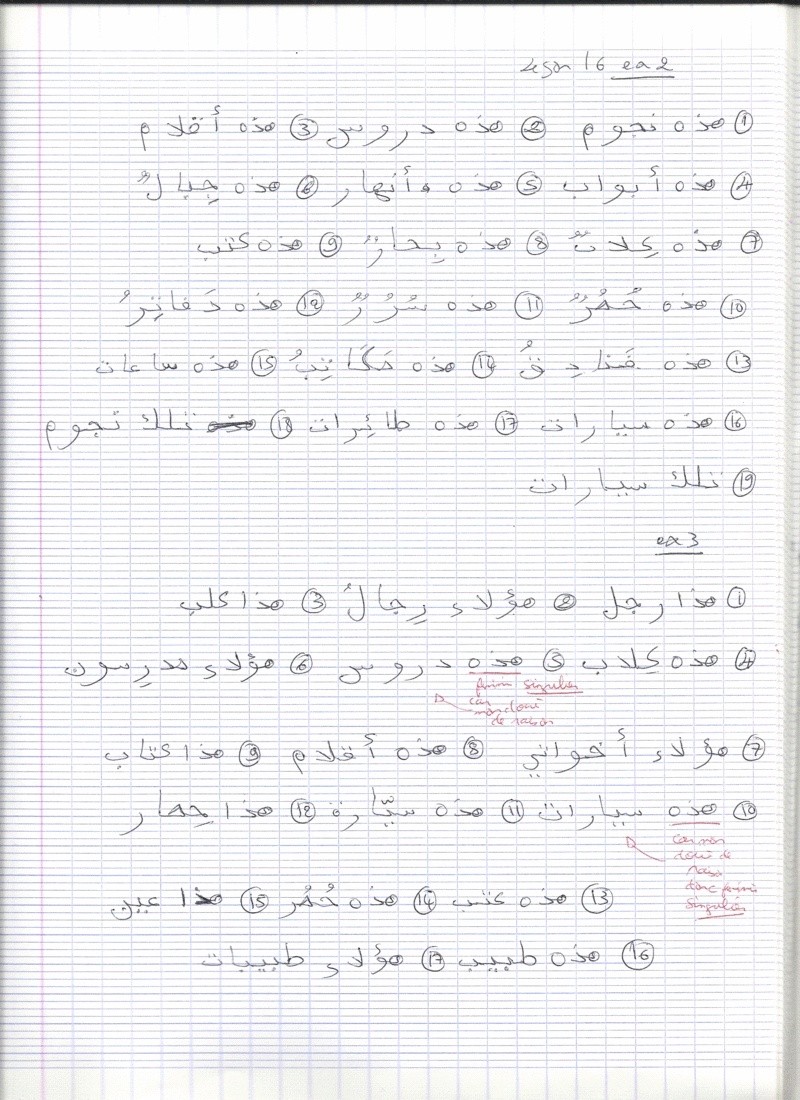 leçon 16 ex 2
① هذه نجوم ② هذه دروس ③ هذه أقلام
④ هذه أبواب ⑤ هذه أنهار ⑥ هذه جِبالٌ
⑦ هذه كِلابٌ ⑧ هذه بِحارٌ ⑨ هذه كتب
⑩ هذه حُمُرٌ ⑪ هذه سُرُرٌ ⑫ هذه دَفاتِرُ
⑬ هذه فَنادِقُ ⑭ هذه مَكَاتِبُ ⑮ هذه ساعات
⑯ هذه سيارات ⑰ هذه طائِرات ⑱ تلك نجوم
⑲ تلك سيارات
ex 3
① هذا رجل ② هؤلاء رِجالٌ ③ هذا كلب
④ هذه كِلاب ⑤ هذه دروس ⑥ هؤلاء مدرِسون
féminin singulier
car
non doué
de raison
⑦ هؤلاء أخواتي ⑧ هذه أقلام ⑨ هذا كتاب
⑩ هذه سيارات ⑪ هذه سيّارة ⑫ هذا حِمار
car non
doué de
raison
donc féminin
singulier
⑬ هذه كتب ⑭ هذه حُمُر ⑮ هذا عين
⑯ هذه طبيب ⑰ هؤلاء طبيبات